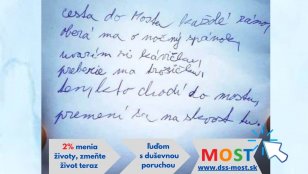 cesta do Mosta každé ráno,
oberá ma o nočný spánok,
uvarím si kávičku,
preberie ma trošičku,
ten kto chodí do mosta,
premení sa na
2% menia
životy, zmeňte
život teraz
ľuďom
s duševnou
poruchou
MOST
www.dss-most.sk